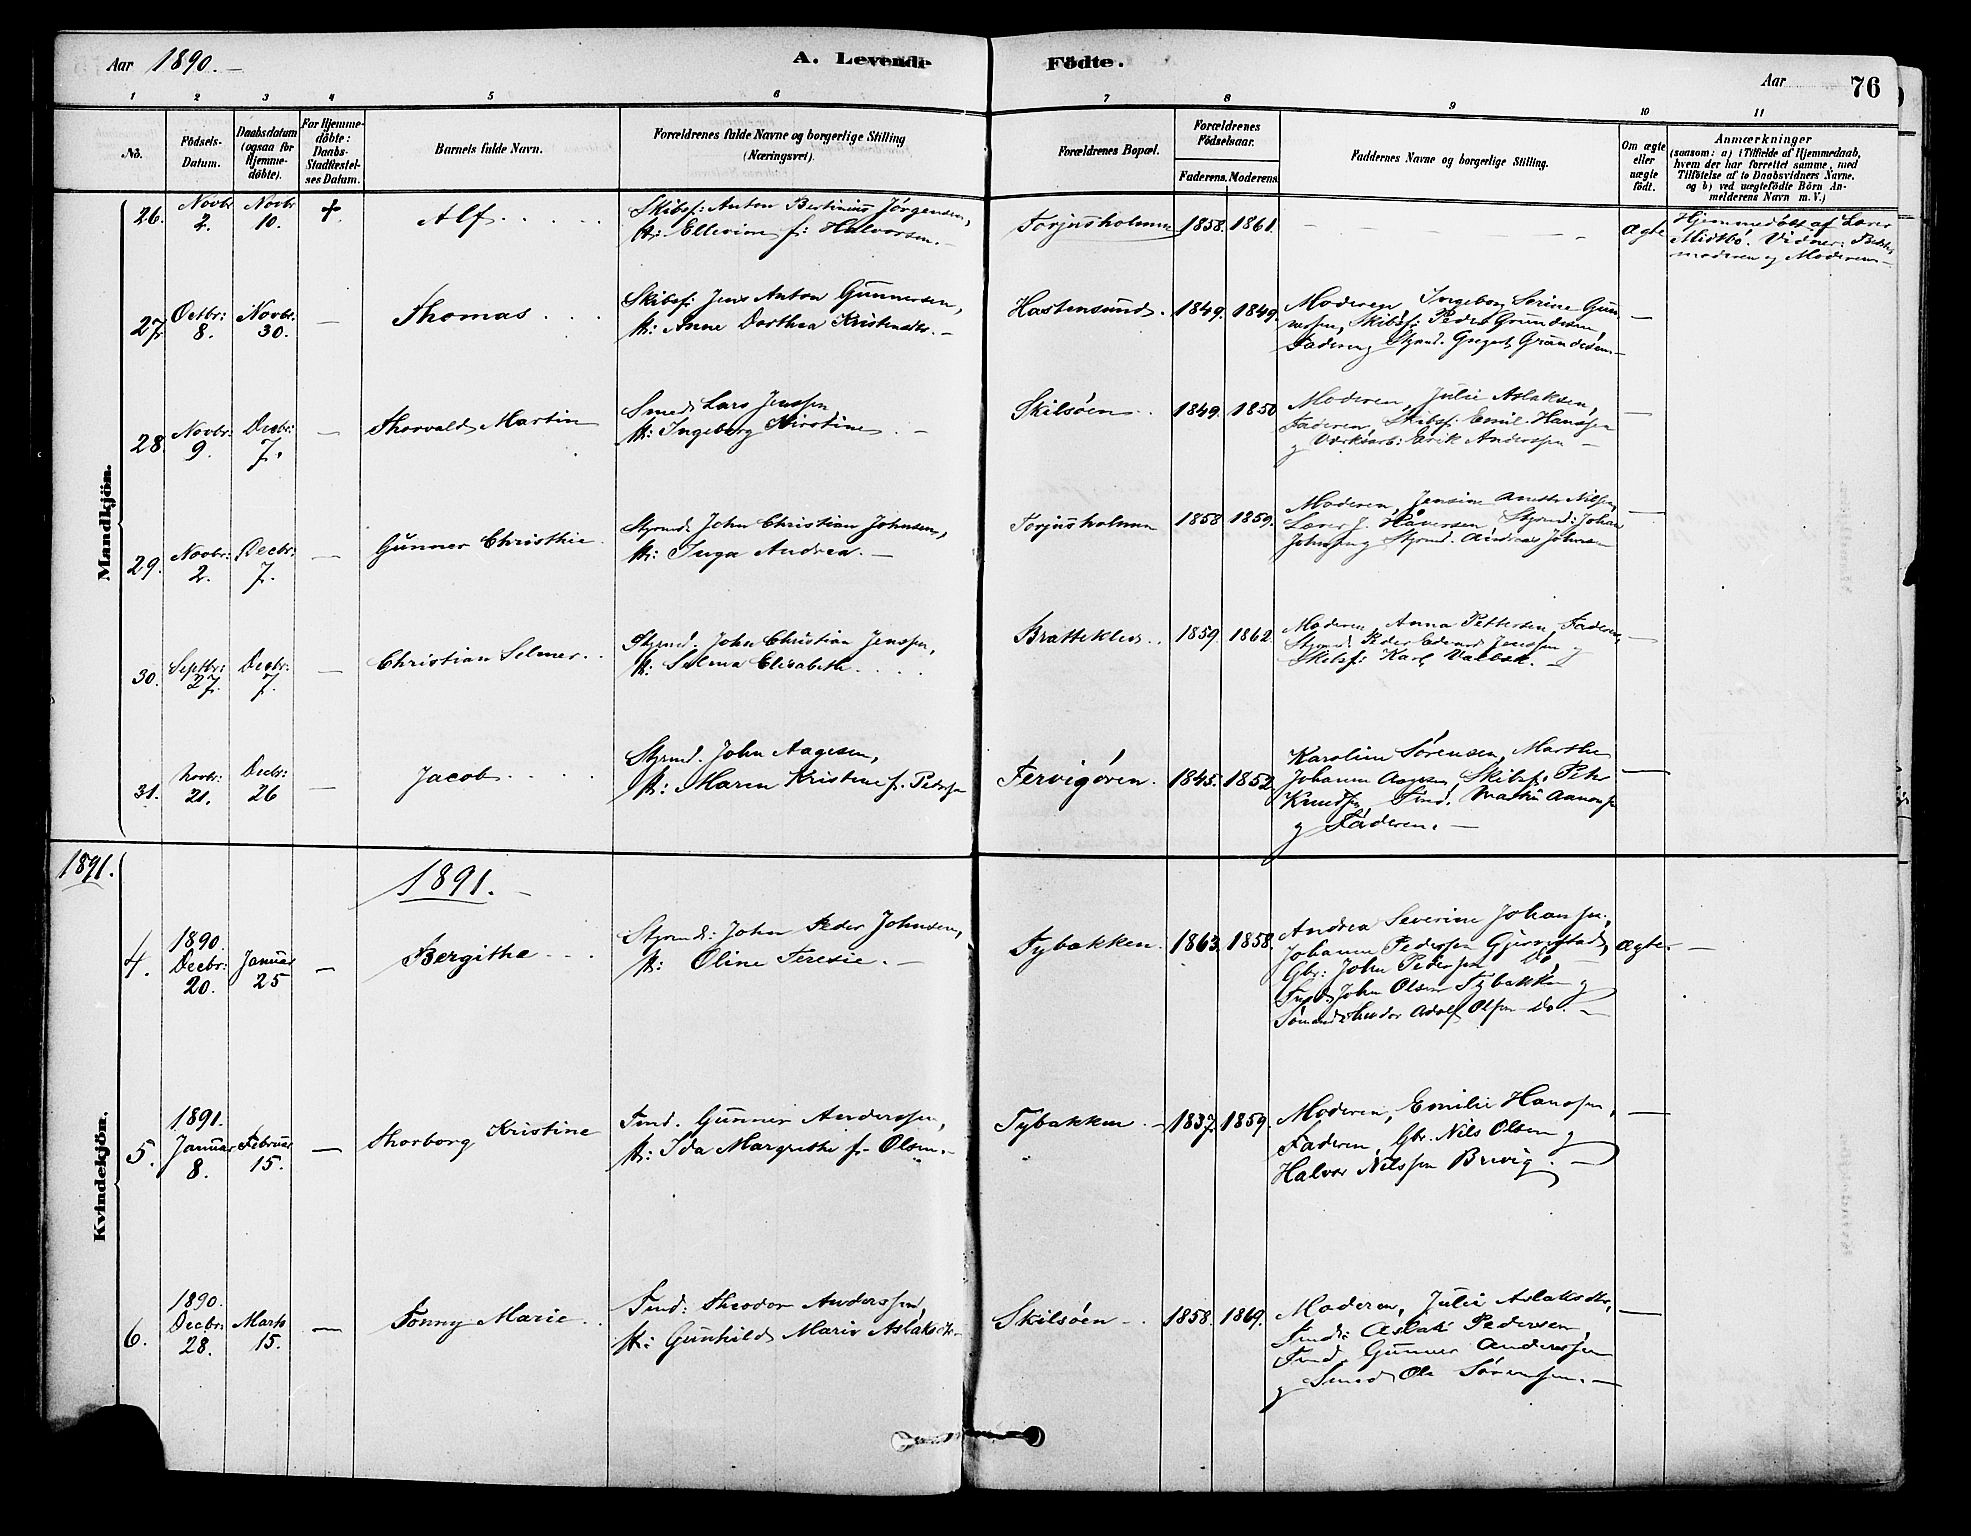 Aar 1890. —
A. Levende Födte.
Aar
76
1 2 3 4 5 6 7 8 9 10 11
No.
Födsels-Datum.
Daabsdatum (ogsaa for Hjemme-döbte).
For Hjemme-döbte: Daabs-Stadfæstel-ses Datum.
Barnets fulde Navn.
Forældrenes fulde Navne og borgerlige Stilling (Næringsvei).
Forældrenes Bopæl.
Forældrenes Födselsaar.
Faderens. Moderens.
Faddernes Navne og borgerlige Stilling.
Om ægte eller uægte födt.
Anmærkninger
(saasom: a) i Tilfælde af Hjemmedaab, hvem der har forrettet samme, med Tilföielse af to Daabsvidners Navne. og b) ved uægtefödte Börn An-melderens Navn m. V.)
Mandkjön.
26. Novbr 2. Novbr 10. +. Alf
Skibsf: Anton Bertinius Jörgensen,
Ellevine f: Halvorsen.
Torjusholmen 1858. 1861. Ægte
Hjemmedöbt af Lærer
Midtbö. Vidner:
moderen og Moderen
27. Octbr: 8. Novbr. 30. — Thomas
Skibsf: Jens Anton Gunnersen,
Anne Dorthea Kristensdtr. —
Hastensund. 1849. 1849.
Moderen, Ingeborg Serine Gun-
Skibsf: Peder Grundesen,
Faderen og Styrmd. Gregert Grundesen —
28. Novbr: 9. Decbr: 7. — Thorvald Martin
Smed Lars Jenssen
Ingeborg Kirstine. —
Skilsöen. 1849. 1850 —
Moderen, Julie Aslaksen,
Faderen, Skibsf: Emil Hanssen
og Værksarb: Erik Anderssen —
29. Novbr: 2. Decbr: 7. — Gunner Christhie.
Styrmd. John Christian Johnsen,
Inga Andrea. —
Torjusholmen 1858 1859. —
Moderen, Jensine Anette Nilsen,
Lærer J. Haversen, Styrmd: Johan
Johnsen og Styrmd. Andreas Johnsen
30. Septbr: 27. Decbr: 7. — Christian Selmer.
Styrmd. John Christian Jenssen,
Selma Elisabeth.
Bratteklev. 1859. 1862. —
Moderen, Anna Pettersen, Faderen,
Styrmd. Peder Edvard Jenssen og
Skibsf: Karl —
31. Novbr: 21. Decbr: 26 — Jacob
Styrmd. John Aagesen,
Maren Kristine f. Pedersen
Tervigören. 1845. 1852. —
Karoline Sörensen, Marthe
Johanne Aagesen, Skibsf. Peter
Knudsen,
og Faderen. —
1891.
1891. —
Kvindekjön.
4. 1890. Decbr: 20. Januar 25 — Bergithe
Styrmd: John Peder Johnsen,
Oline Teresie. —
Tybakken. 1863. 1858. Ægte. —
Andrea Severine Johansen,
Johanne Pedersen Gjerrestad,
Gbr: John Pedersen Do,
Tmd. John Olsen Tybakken og
Sömand Theodor Adolf Olsen Do. —
5. 1891. Januar 8. Februar 15. — Thorborg Kristine
Tmd. Gunner Anderssen,
Ida Margrethe f. Olsen. —
Tybakken. — 1837. 1859. —
Moderen, Emilie Hanssen,
Faderen, Gbr. Nils Olsen og
Halvor Nilssen Brevig. —
6. 1890. Decbr: 28. Marts 15. — Tonny Marie.
Tmd: Theodor Anderssen,
Gunhild Marie Aslaksdtr
Skilsöen. 1858. 1869. —
Moderen, Julie Aslaksdtr,
Tmd: Aslak Pedersen,
Tmd. Gunner Anderssen
og Smed Ole Sörensen. —